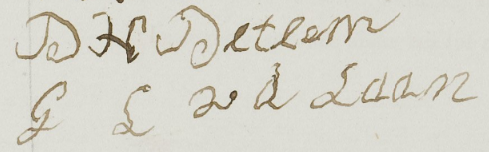 D H Detlem
G L v d Laan